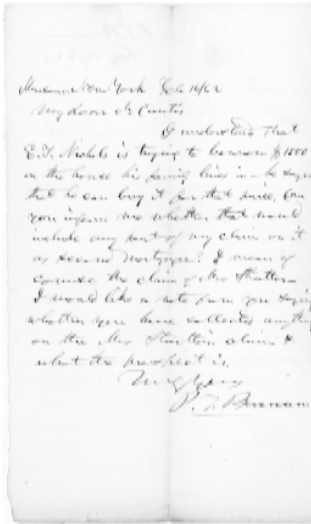 New York Feb 16/62
My dear Mr Curtis
I understand that
E. T. Nichols is trying to borrow $1500
on the house his family lives in — he says
that he can buy it for that price. Can
you inform me whether that would
include any part of my claim on it
as second mortgagee? I mean of
course the claim of Mrs
I would like a note from you saying
whether you have collected anything
on the Mrs claim &
what the prospect is.